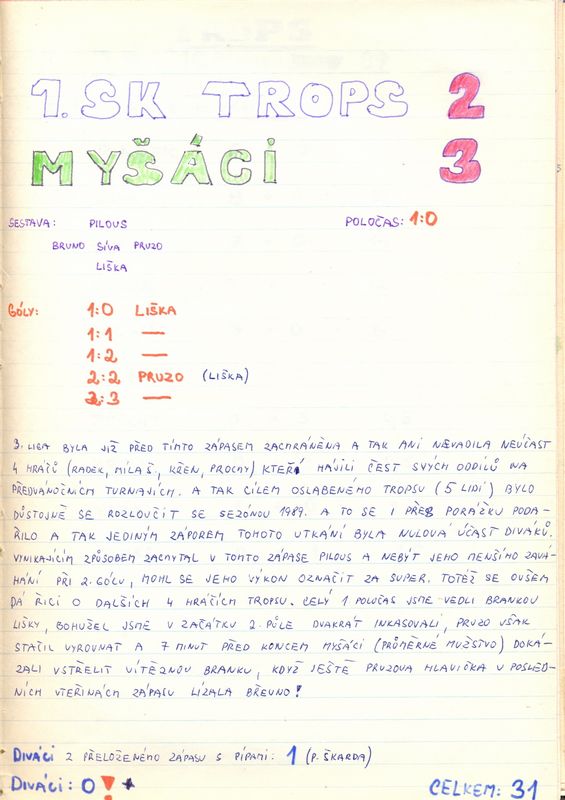 1. SK TROPS 2
MYŠÁCI 3
SESTAVA: PILOUS POLOČAS: 1:0
BRUNO SÍVA PRUZO
LIŠKA
GÓLY: 1:0 LIŠKA
1:1 —
1:2 —
2:2 PRUZO (LIŠKA)
2:3 —
3. LIGA BYLA JIŽ PŘED TÍMTO ZÁPASEM ZACHRÁNĚNA A TAK ANI NEVADILA NEÚČAST
4 HRÁČŮ (RADEK, MILAŠ, KŘEN, PROCHY) KTEŘÍ HÁJILI ČEST SVÝCH ODDÍLŮ NA
PŘEDVÁNOČNÍCH TURNAJÍCH. A TAK CÍLEM OSLABENÉHO TROPSU (5 LIDÍ) BYLO
DŮSTOJNĚ SE ROZLOUČIT SE SEZÓNOU 1989. A TO SE I PŘES PORÁŽKU PODA-
ŘILO A TAK JEDINÝM ZÁPOREM TOHOTO UTKÁNÍ BYLA NULOVÁ ÚČAST DIVÁKŮ.
VYNIKAJÍCÍM ZPŮSOBEM ZACHYTAL V TOMTO ZÁPASE PILOUS A NEBÝT JEHO MENŠÍHO ZAVÁ-
HÁNÍ PŘI 2. GÓLU, MOHL SE JEHO VÝKON OZNAČIT ZA SUPER. TOTÉŽ SE OVŠEM
DÁ ŘÍCI O DALŠÍCH 4 HRÁČÍCH TROPSU. CELÝ 1 POLOČAS JSME VEDLI BRANKOU
LIŠKY, BOHUŽEL JSME V ZAČÁTKU 2. PŮLE DVAKRÁT INKASOVALI, PRUZO VŠAK
STAČIL VYROVNAT A 7 MINUT PŘED KONCEM MYŠÁCI (PRŮMĚRNÉ MUŽSTVO) DOKÁ-
ZALI VSTŘELIT VÍTĚZNOU BRANKU, KDYŽ JEŠTĚ PRUZOVA HLAVIČKA V POSLED-
NÍCH VTEŘINÁCH ZÁPASU LÍZALA BŘEVNO!
DIVÁCI Z PŘELOŽENÉHO ZÁPASU S PÍPAMI: 1 (P. ŠKARDA)
DIVÁCI: 0! + CELKEM: 31